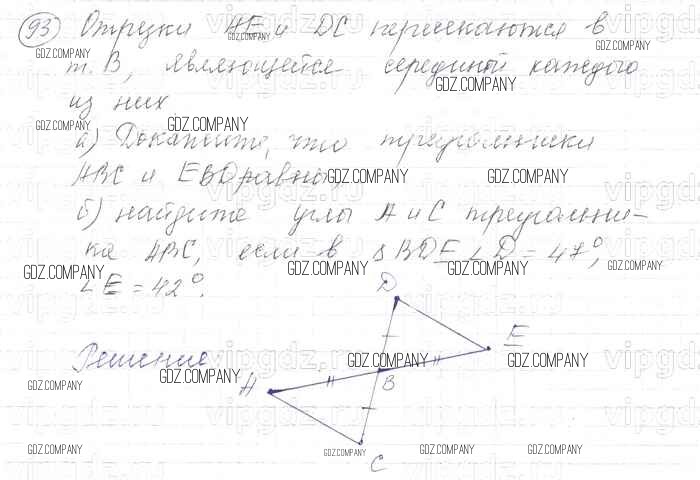 93) Отрезки AE и DC пересекаются в
т. B, являющейся серединой каждого
из них
а) Докажите, что треугольники
ABC и EBD равны;
б) найдите углы A и C треугольни-
ка ABC, если в ΔBDE ∠D = 47°,
∠E = 42°.
Решение
D
E
A
B
C
GDZ.COMPANY
GDZ.COMPANY
GDZ.COMPANY
GDZ.COMPANY
GDZ.COMPANY
GDZ.COMPANY
GDZ.COMPANY
GDZ.COMPANY
GDZ.COMPANY
GDZ.COMPANY
GDZ.COMPANY
GDZ.COMPANY
GDZ.COMPANY
GDZ.COMPANY
GDZ.COMPANY
GDZ.COMPANY
GDZ.COMPANY
GDZ.COMPANY
GDZ.COMPANY
GDZ.COMPANY
GDZ.COMPANY